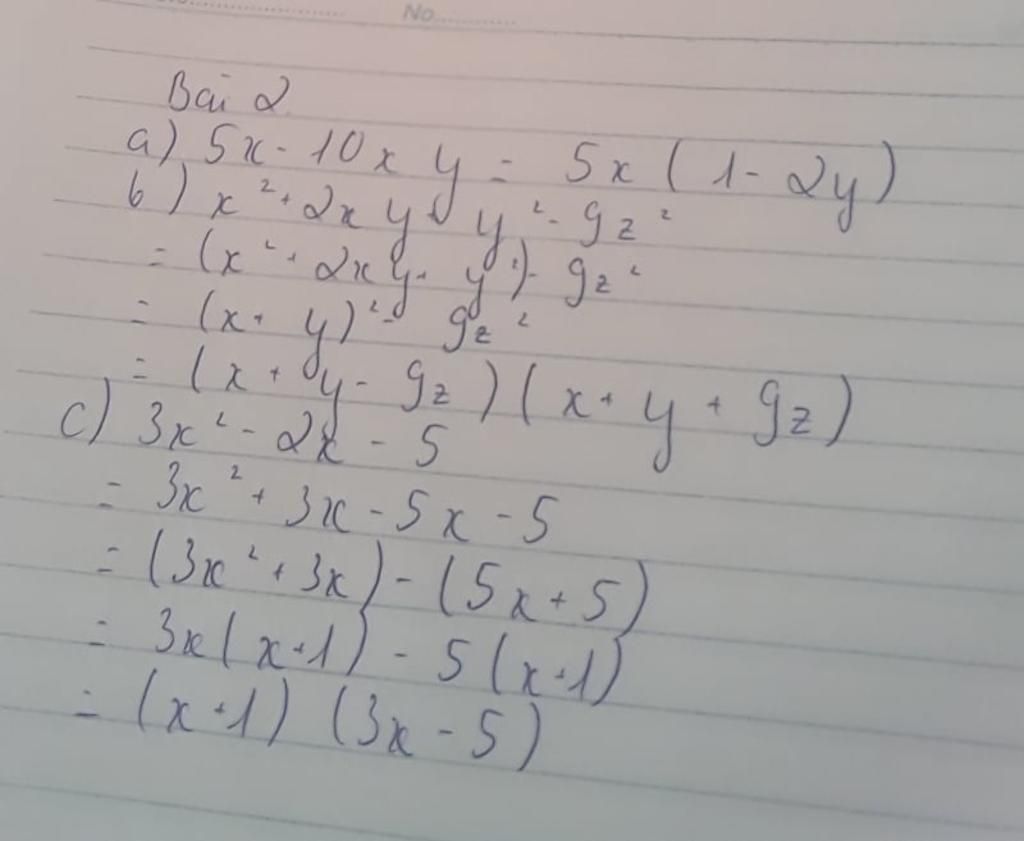 No.............
Bài 2
a) 5x - 10xy = 5x(1 - 2y)
b) x² + 2xy + y² - 9z²
= (x² + 2xy + y²) - 9z²
= (x + y)² - 9z²
= (x + y - 9z)(x + y + 9z)
c) 3x² - 2x - 5
= 3x² + 3x - 5x - 5
= (3x² + 3x) - (5x + 5)
= 3x(x + 1) - 5(x + 1)
= (x + 1)(3x - 5)